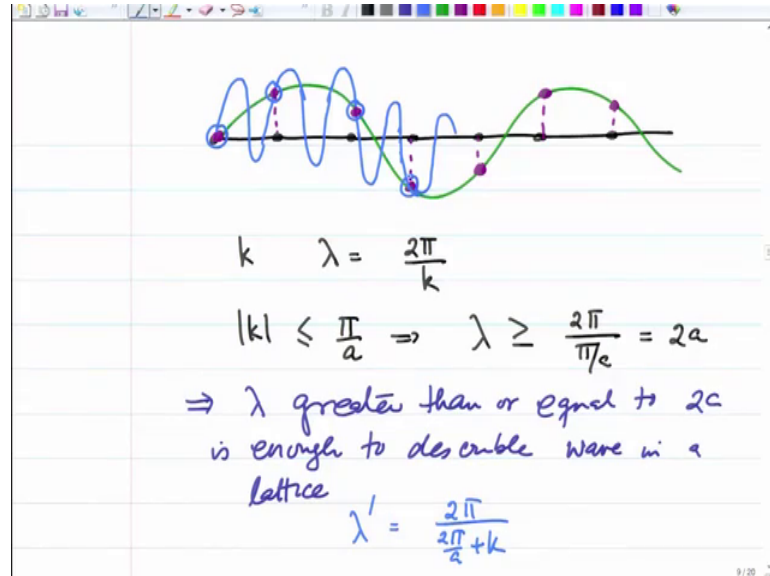 k λ = 2π/k
|k| ≤ π/a ⇒ λ ≥ 2π/(π/a) = 2a
⇒ λ greater than or equal to 2a
is enough to describle wave in a
lattice
λ' = 2π/(2π/a + k)
9 / 20